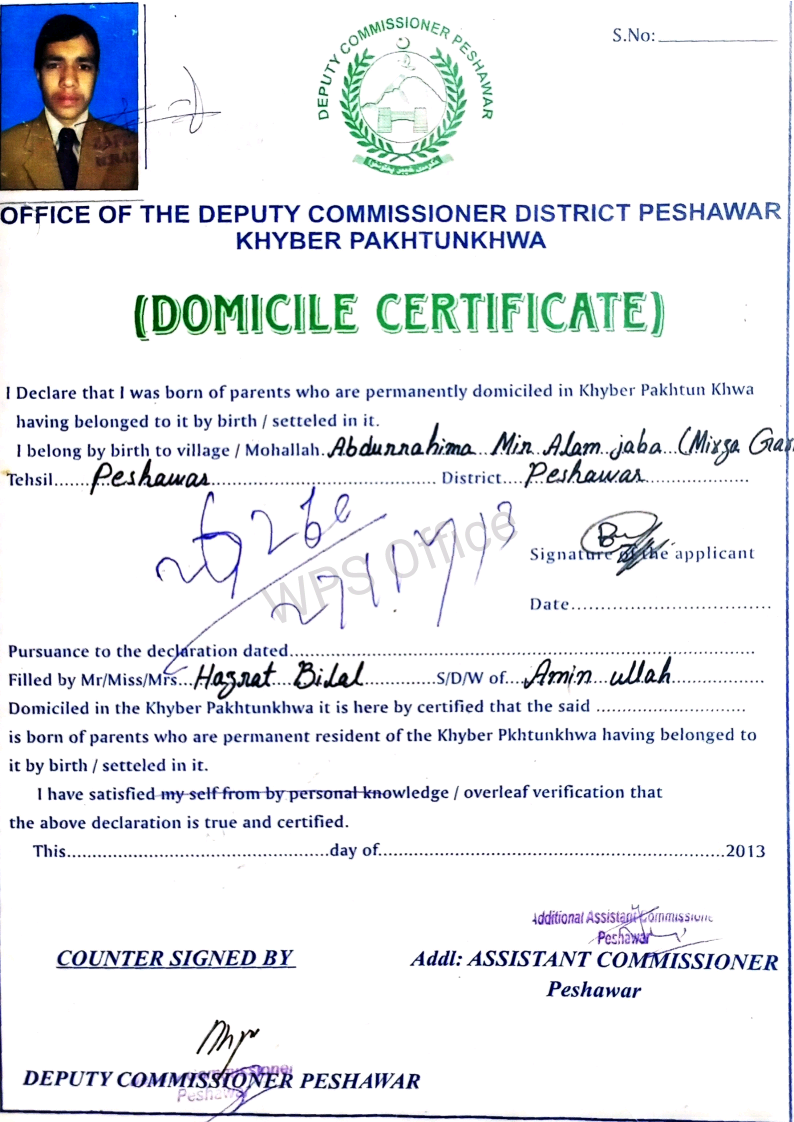 DEPUTY COMMISSIONER PESHAWAR
S.No:
OFFICE OF THE DEPUTY COMMISSIONER DISTRICT PESHAWAR
KHYBER PAKHTUNKHWA
(DOMICILE CERTIFICATE)
I Declare that I was born of parents who are permanently domiciled in Khyber Pakhtun Khwa
having belonged to it by birth / setteled in it.
I belong by birth to village / Mohallah. Abdurrahima Min Alam jaba (Mirza
Tehsil....... Peshawar ........ District.... Peshawar
WPS Office
Signature of the applicant
Date
Pursuance to the declaration dated
Filled by Mr/Miss/Mrs... Hazrat Bilal ........S/D/W of... Amin ullah
Domiciled in the Khyber Pakhtunkhwa it is here by certified that the said
is born of parents who are permanent resident of the Khyber Pkhtunkhwa having belonged to
it by birth / setteled in it.
I have satisfied my self from by personal knowledge / overleaf verification that
the above declaration is true and certified.
This........day of........2013
Additional Assistant Commissione
Peshawar
COUNTER SIGNED BY
Addl: ASSISTANT COMMISSIONER
Peshawar
DEPUTY COMMISSIONER PESHAWAR
Peshawar